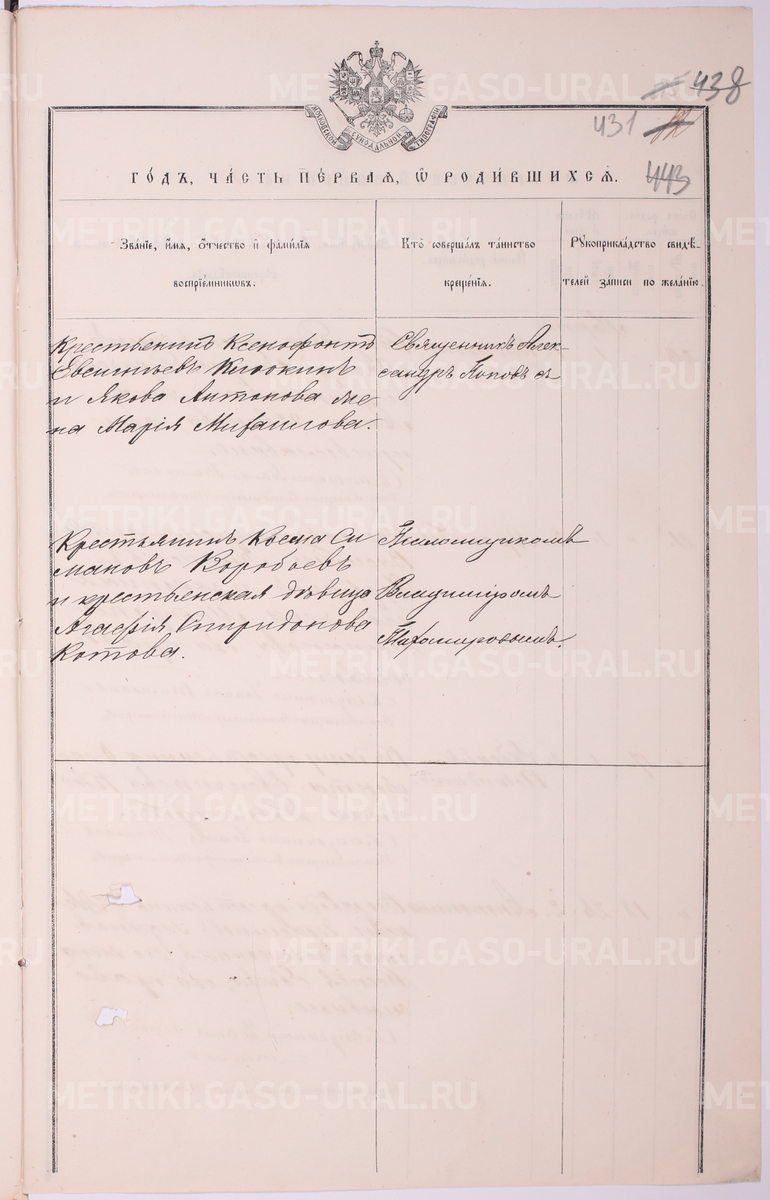 438
431
443
МОСКОВСКОЙ СѴНОДАЛЬНОЙ ТИПОГРАФІИ
ГО́ДЪ, ЧА́СТЬ ПЕ́РВАЯ, Ѡ РОДИ́ВШИХСѦ.
Зва́нїе, и҆́мѧ, ѻ҆́тчество и҆ фами́лїѧ
воспрїе́мникѡвъ.
Кто̀ соверша́лъ та́инство
креще́нїѧ.
Рꙋкоприкла́дство свидѣ́-
телей за́писи по жела́нїю.
Крестьянинъ Ксенофонтъ
Евсигньевъ Клюкинъ
и Якова Антонова же-
на Марія Михаилова.
Священникъ Алек-
сандръ Поповъ съ
Крестьянинъ Косма Си
мановъ Воробьевъ
и крестьянская дѣвица
Агафія Спиридонова
Котова.
Псаломщикомъ
Владиміромъ
Тихомировымъ.
METRIKI.GASO-URAL.RU